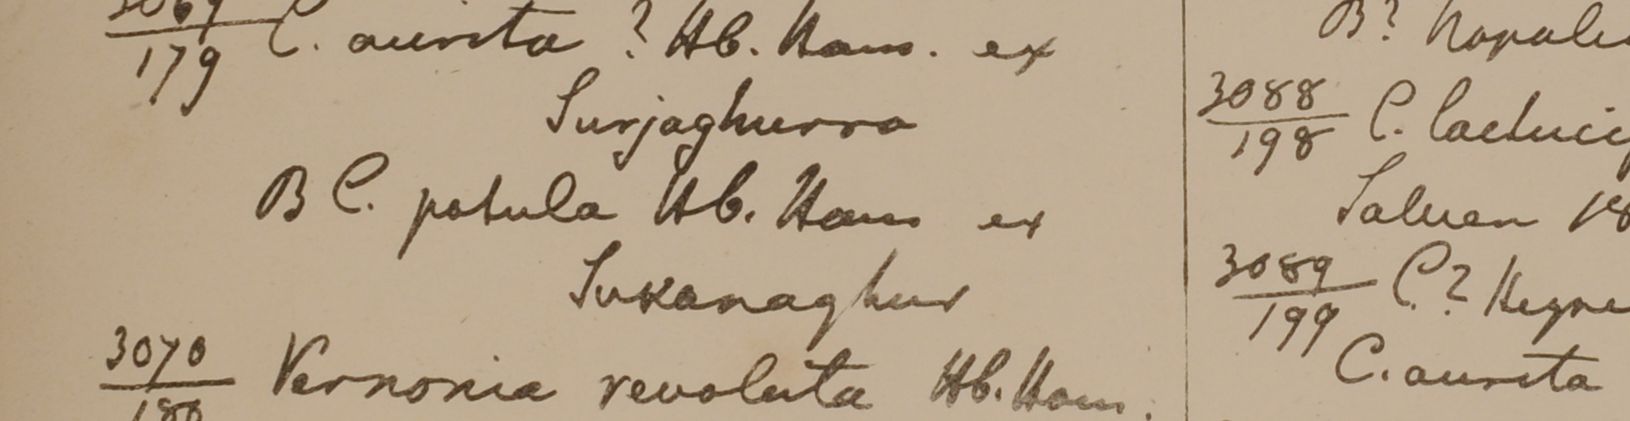 3069
179 C. aurita ? Hb. Ham. ex
Surjaghurra
B C. patula Hb. Ham ex
Sukanaghur
3070
180 Vernonia revoluta Hb. Ham.
B? Napalia
3088
198 C.
Saluen
3089
199 C.? Heyne
C. aurita